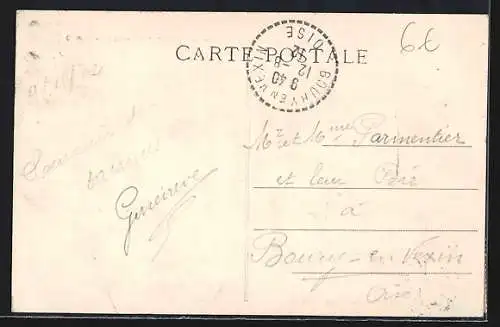 6€
CARTE POSTALE
BOURY EN VEXIN
OISE
9 40
12 -8
32
Souvenir d'
Geneviève
Mr et Mme Parmentier
et leur
à
Boury-en-Vexin
Oise